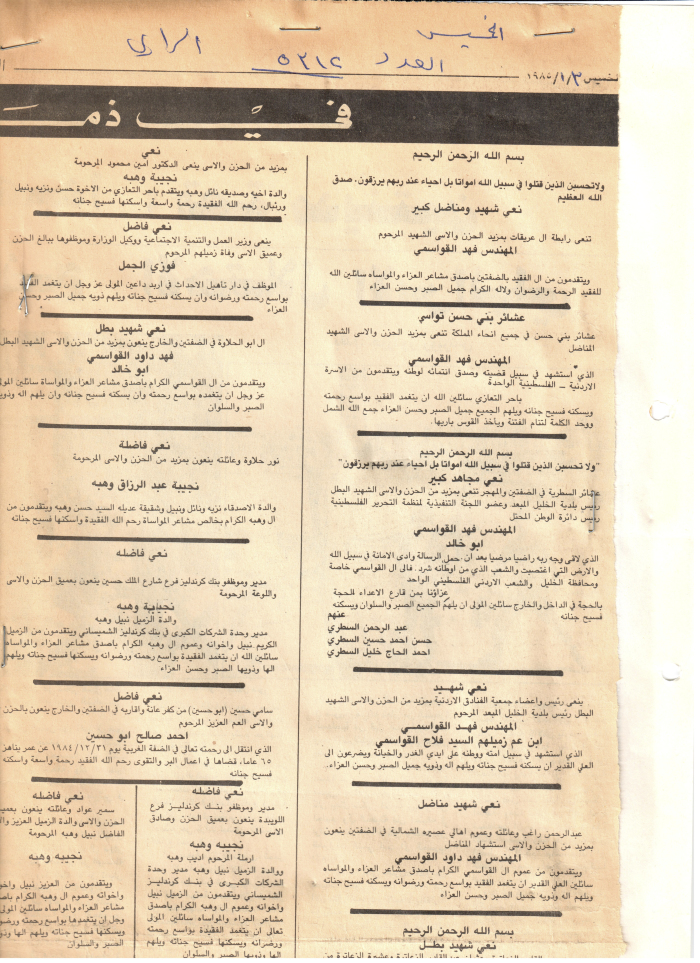 الخميس
الراي العدد ٥٣١٢
الخميس ١٩٨٥/١/٣
في ذمـ
بسم الله الرحمن الرحيم
ولاتحسبن الذين قتلوا في سبيل الله امواتا بل احياء عند ربهم يرزقون، صدق
الله العظيم
نعي شهيد ومناضل كبير
تنعى رابطة ال عريقات بمزيد الحزن والاسى الشهيد المرحوم
المهندس فهد القواسمي
ويتقدمون من ال الفقيد بالضفتين باصدق مشاعر العزاء والمواساه سائلين الله
للفقيد الرحمة والرضوان ولاله الكرام جميل الصبر وحسن العزاء
عشائر بني حسن تواسي
عشائر بني حسن في جميع انحاء المملكة تنعى بمزيد من الحزن والاسى الشهيد
المناضل
المهندس فهد القواسمي
الذي استشهد في سبيل قضيته وصدق انتمائه لوطنه ويتقدمون من الاسرة
الاردنية - الفلسطينية الواحدة
باحر التعازي سائلين الله ان يتغمد الفقيد بواسع رحمته
ويسكنه فسيح جنانه ويلهم الجميع جميل الصبر وحسن العزاء جمع الله الشمل
ووحد الكلمة لتنام الفتنة وياخذ القوس باريها.
بسم الله الرحمن الرحيم
"ولا تحسبن الذين قتلوا في سبيل الله امواتا بل احياء عند ربهم يرزقون"
نعي مجاهد كبير
عشائر السطرية في الضفتين والمهجر تنعى بمزيد من الحزن والاسى الشهيد البطل
رئيس بلدية الخليل المبعد وعضو اللجنة التنفيذية لمنظمة التحرير الفلسطينية
رئيس دائرة الوطن المحتل
المهندس فهد القواسمي
ابو خالد
الذي لاقى وجه ربه راضيا مرضيا بعد ان حمل الرسالة وادى الامانة في سبيل الله
والارض التي اغتصبت والشعب الذي من اوطانه شرد. فالى ال القواسمي خاصة
ومحافظة الخليل والشعب الاردني الفلسطيني الواحد
عزاؤنا بمن قارع الاعداء الحجة
بالحجة في الداخل والخارج سائلين المولى ان يلهم الجميع الصبر والسلوان ويسكنه
فسيح جنانه
عنهم
عبد الرحمن السطري
حسن احمد حسين السطري
احمد الحاج خليل السطري
نعي شهـيد
ينعى رئيس واعضاء جمعية الفنادق الاردنية بمزيد من الحزن والاسى الشهيد
البطل رئيس بلدية الخليل المبعد المرحوم
المهندس فهـد القواسمـي
ابن عم زميلهم السيد فلاح القواسمي
الذي استشهد في سبيل امته ووطنه على ايدي الغدر والخيانة ويضرعون الى
العلي القدير ان يسكنه فسيح جناته ويلهم اله وذويه جميل الصبر وحسن العزاء.
نعي شهيد مناضل
عبدالرحمن راغب وعائلته وعموم اهالي عصيره الشمالية في الضفتين ينعون
بمزيد من الحزن والاسى استشهاد المناضل
المهندس فهد داود القواسمي
ويتقدمون من عموم ال القواسمي الكرام باصدق مشاعر العزاء والمواساه
سائلين العلي القدير ان يتغمد الفقيد بواسع رحمته ورضوانه ويسكنه فسيح جناته
ويلهم اله وذويه جميل الصبر وحسن العزاء
بسم الله الرحمن الرحيم
نعي شهيد بطـل
نعي
بمزيد من الحزن والاسى ينعى الدكتور امين محمود المرحومة
نجيبة وهبه
والدة اخيه وصديقه نائل وهبه ويتقدم باحر التعازي من الاخوة حسن ونزيه ونبيل
ورئبال، رحم الله الفقيدة رحمة واسعة واسكنها فسيح جناته
نعي فاضل
ينعى وزير العمل والتنمية الاجتماعية ووكيل الوزارة وموظفوها ببالغ الحزن
وعميق الاسى وفاة زميلهم المرحوم
فوزي الجمل
الموظف في دار تاهيل الاحداث في اربد داعين المولى عز وجل ان يتغمد الفقيد
بواسع رحمته ورضوانه وان يسكنه فسيح جناته ويلهم ذويه جميل الصبر وحسن
العزاء
نعي شهيد بطل
ال ابو الحلاوة في الضفتين والخارج ينعون بمزيد من الحزن والاسى الشهيد البطل
فهد داود القواسمي
ابو خالد
ويتقدمون من ال القواسمي الكرام باصدق مشاعر العزاء والمواساة سائلين المولى
عز وجل ان يتغمده بواسع رحمته وان يسكنه فسيح جناته وان يلهم اله وذويه
الصبر والسلوان
نعي فاضلة
نور حلاوة وعائلته ينعون بمزيد من الحزن والاسى المرحومة
نجيبة عبد الرزاق وهبه
والدة الاصدقاء نزيه ونائل ونبيل وشقيقة عديله السيد حسن وهبه ويتقدمون من
ال وهبه الكرام بخالص مشاعر المواساة رحم الله الفقيدة واسكنها فسيح جناته
نعي فاضله
مدير وموظفو بنك كرندليز فرع شارع الملك حسين ينعون بعميق الحزن والاسى
واللوعة المرحومة
نجيبة وهبه
والدة الزميل نبيل وهبه
مدير وحدة الشركات الكبرى في بنك كرندليز الشميساني ويتقدمون من الزميل
الكريم نبيل واخوانه وعموم ال وهبه الكرام باصدق مشاعر العزاء والمواساه
سائلين الله ان يتغمد الفقيدة بواسع رحمته ورضوانه ويسكنها فسيح جناته ويلهم
الها وذويها الصبر وحسن العزاء
نعي فاضل
سامي حسين (ابو حسين) من كفر عانة واقاربه في الضفتين والخارج ينعون بالحزن
والاسى العم العزيز المرحوم
احمد صالح ابو حسين
الذي انتقل الى رحمته تعالى في الضفة الغربية يوم ١٩٨٤/١٢/٣١ عن عمر يناهز
٦٥ عاما، قضاها في اعمال البر والتقوى رحم الله الفقيد رحمة واسعة واسكنه
فسيح جناته
نعي فاضله
مدير وموظفو بنـك كرندليـز فرع
اللويبدة ينعون بعميق الحزن وصادق
الاسى المرحومة
نجيبه وهبه
ارملة المرحوم اديب وهبه
ووالدة الزميل نبيل وهبه مدير وحدة
الشركات الكبـرى في بنـك كرندليـز
الشميساني ويتقدمون من الزميل نبيل
واخوانه وعموم ال وهبه الكرام باصدق
مشاعر العزاء والمواساه سائلين المولى
تعالى ان يتغمد الفقيدة بواسع رحمته
ورضوانه ويسكنها فسيح جناته ويلهم
الها وذويها الصبر والسلوان
نعي فاضله
سمير عواد وعائلته ينعون بعميق
الحزن والاسى والدة الزميل العزيز
الفاضل نبيل وهبه المرحومة
نجيبه وهبه
ويتقدمون من العزيز نبيل
واخوانه وعموم ال وهبه الكرام باصدق
مشاعر العزاء والمواساه سائلين المولى
وجل ان يتغمدها بواسع رحمته
ويسكنها فسيح جناته ويلهم ذويها
الصبر والسلوان